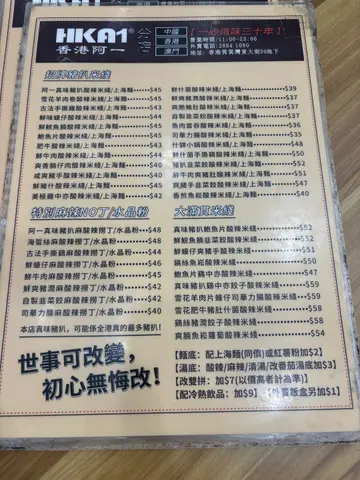 HKA1®
香港阿一
中國
香港
澳門
【一心鑄味三十年】
營業時間:11:00-23:00
外賣電話:2884 1080
地址:香港筲箕灣東大街30地下
招牌豬扒米綫
阿一真味豬扒酸辣米綫/上海麵$45
雪花羊肉卷酸辣米綫/上海麵$45
古法手撕雞酸辣米綫/上海麵$45
鮮味蠔仔酸辣米綫/上海麵$44
鮮魷魚鬚酸辣米綫/上海麵$44
鮑魚片酸辣米綫/上海麵$44
肥牛酸辣米綫/上海麵$43
鮮牛肉酸辣米綫/上海麵$40
爽香腩仔肉酸辣米綫/上海麵$40
咸爽豬手酸辣米綫/上海麵$43
鮮豬什酸辣米綫/上海麵$44
美極雞中亦酸辣米綫/上海麵$42
鮮什菌酸辣米綫/上海麵$39
鮮爽豬潤酸辣米綫/上海麵$38
爽脆豬肚酸辣米綫/上海麵$37
自製韮菜餃酸辣米綫/上海麵$37
魚肉雲吞酸辣米綫/上海麵$36
司華力腸酸辣米綫/上海麵$35
什錦小鍋酸辣米綫/上海麵$48
什菌手撕雞酸辣米綫/上海麵$50
豬扒韮菜餃酸辣米綫/上海麵$52
鮮牛肉爽豬肚酸辣米綫/上海麵$51
爽豬手韮菜餃酸辣米綫/上海麵$47
香煎魚片酸辣米綫/上海麵$40
特別麻辣NO丁/水晶粉
阿一真味豬扒麻酸辣撈丁/水晶粉$48
海蜇絲麻酸辣撈丁/水晶粉$48
古法手撕雞麻酸辣撈丁/水晶粉$48
鮮蠔仔麻酸辣撈丁/水晶粉$46
鮮牛肉麻酸辣撈丁/水晶粉$44
鮮爽豬潤麻酸辣撈丁/水晶粉$42
自製韮菜餃麻酸辣撈丁/水晶粉$42
司華力腸麻酸辣撈丁/水晶粉$40
本店真味豬扒,可能係全港真的最多豬扒!
大滿貫米綫
真味豬扒鮑魚片酸辣米綫$52
鮮魷魚鬚韮菜餃酸辣米綫$52
鮮蠔仔爽豬手酸辣米綫$51
雞絲魚崧酸辣米綫$50
鮑魚片雞中亦酸辣米綫$47
真味豬扒雞中亦餃子酸辣米綫$59
雪花羊肉片蠔仔司華力腸酸辣米綫$59
雪花肥牛豬肚什菌酸辣米綫$59
雞絲豬潤餃子酸辣米綫$58
爽腩魚崧蘿蔔酸辣米綫$54
世事可改變,
初心無悔改!
【麵底:配上海麵(同價)或紅薯粉加$2】
【湯底:酸辣/麻辣/清湯/改番茄湯底加$3】
【改雙拼:加$7(以價高者計為準)】
【配冷熱飲品:加$9】【外賣飯盒另加$1】